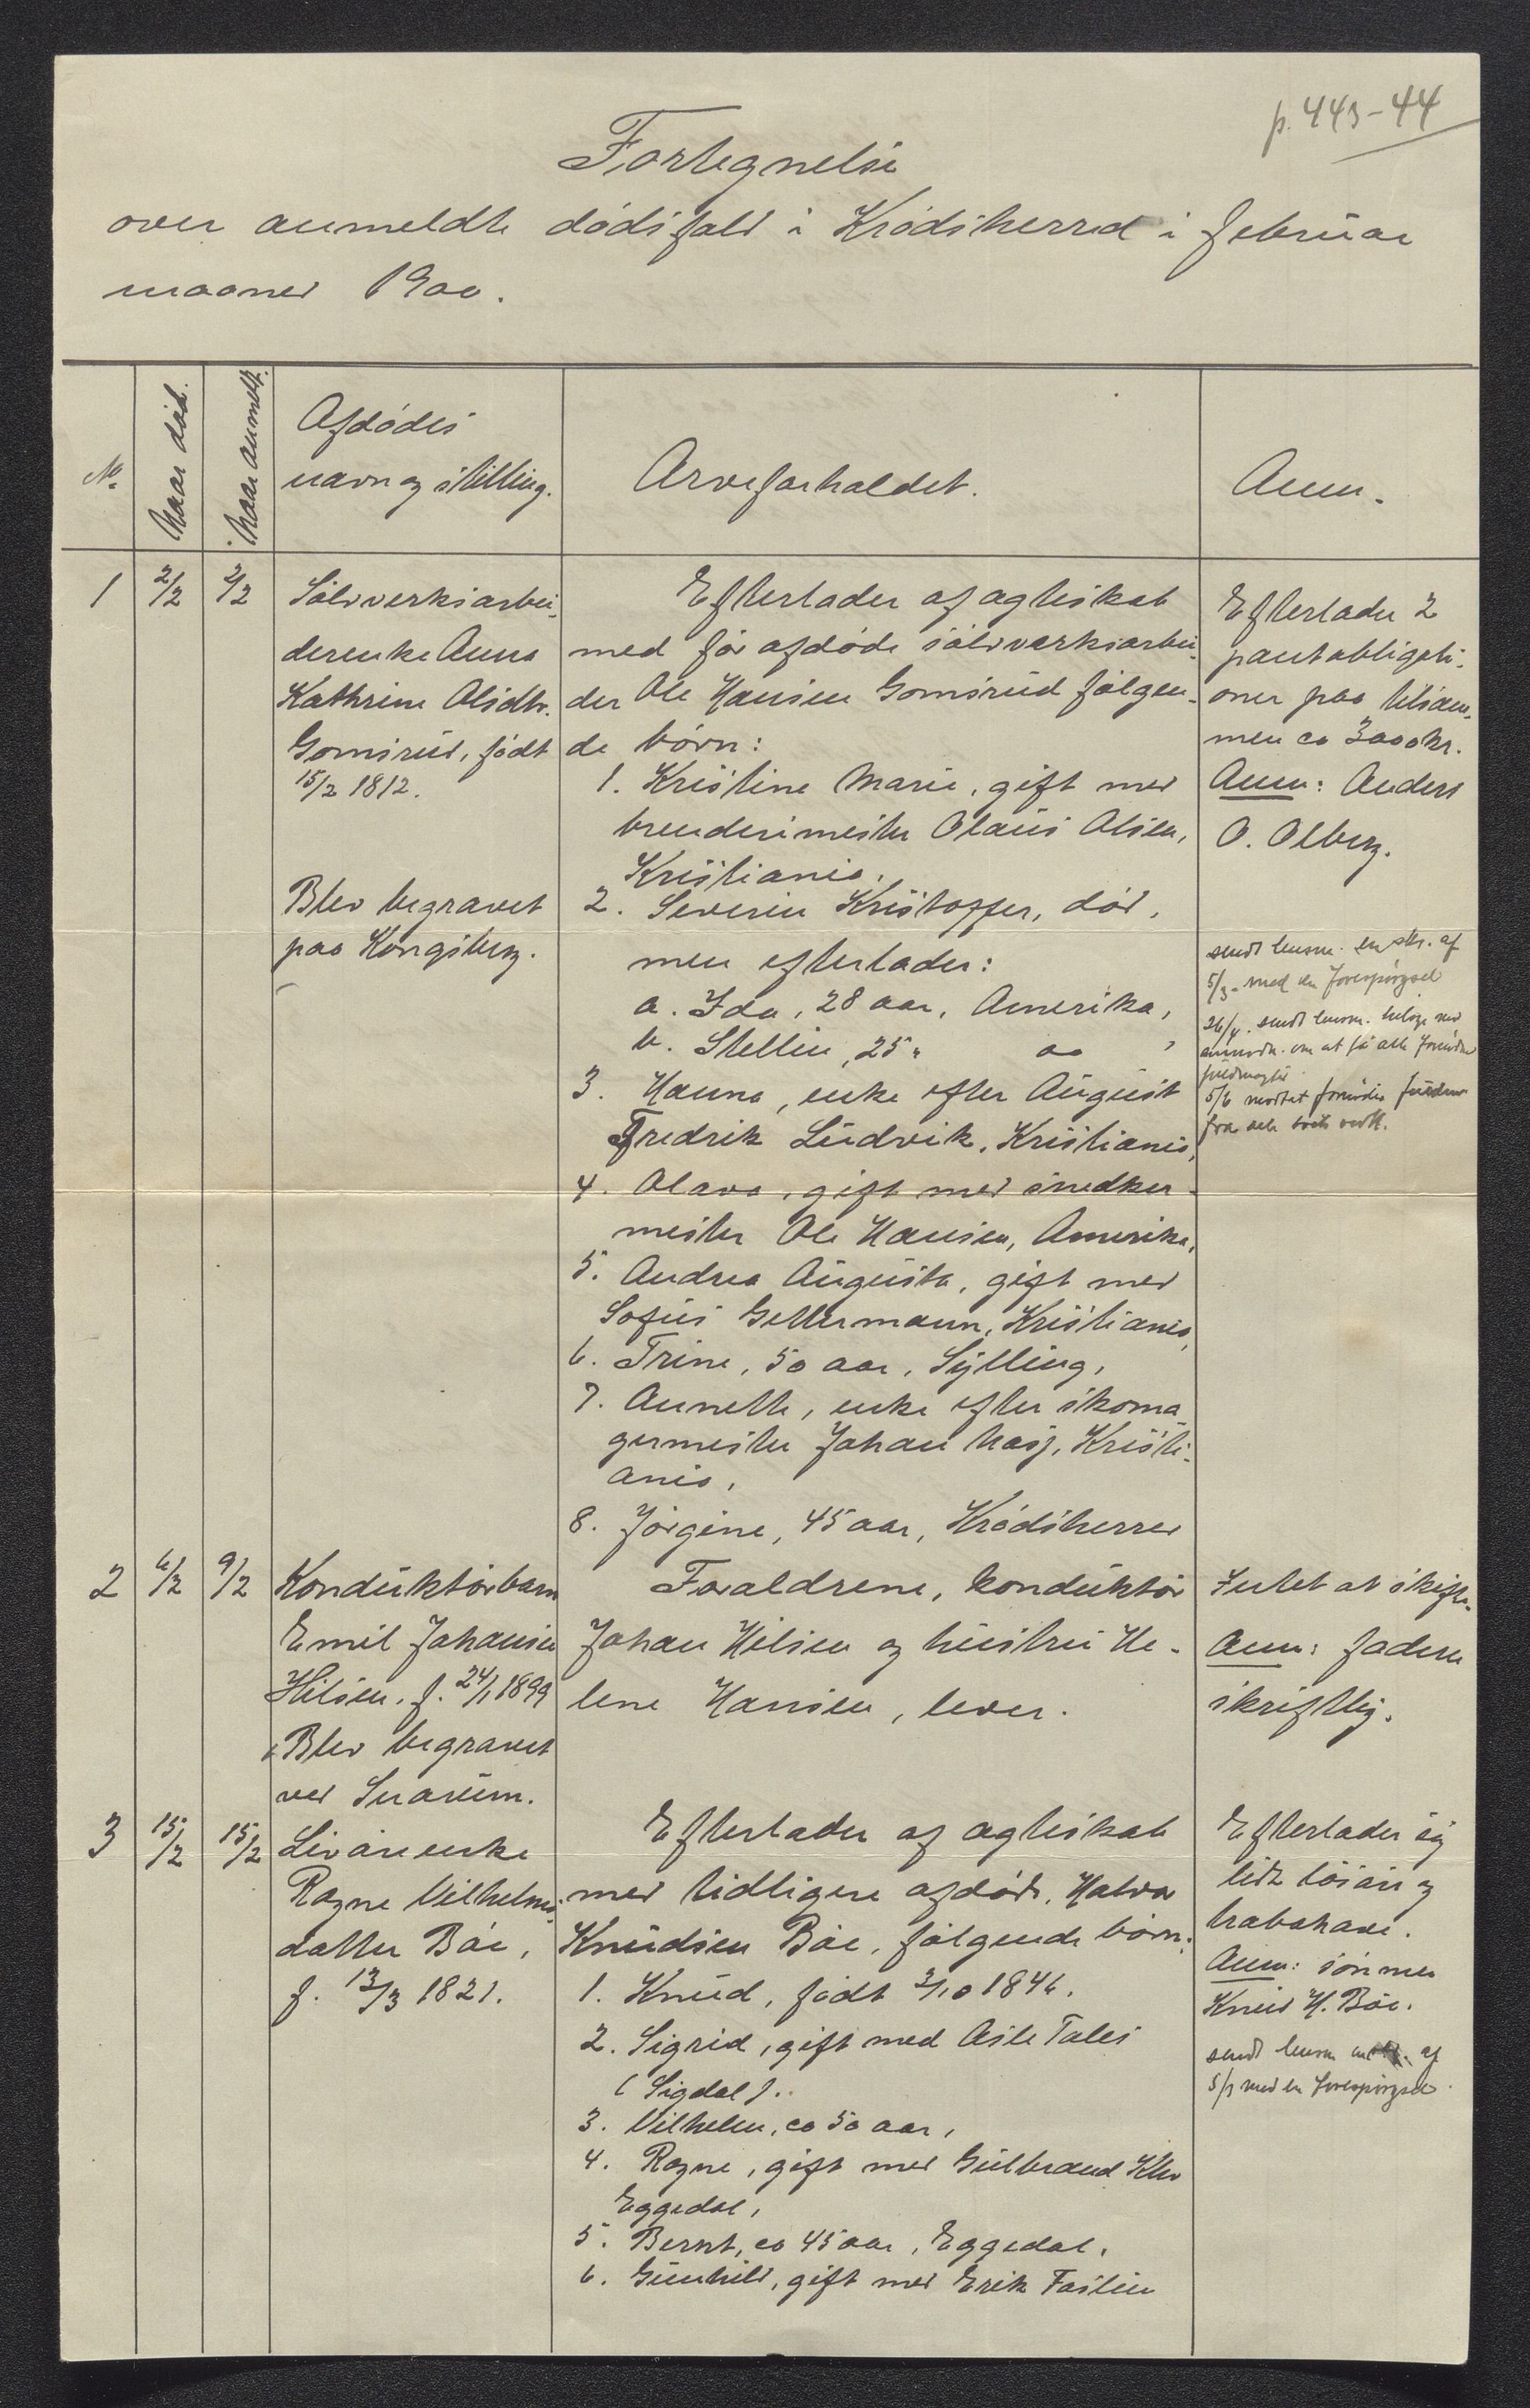 p. 443-44
Fortegnelse
over anmeldte dødsfald i Krødsherred i februar
maaned 1900.
No.
Naar død.
Naar anmeldt.
Afdødes
navn og stilling.
Arveforholdet.
Anm.
1
2/2
2/2
Sølvverksarbei-
derenke Anna
Kathrine Olsdtr.
Gomsrud, født
15/2 1812.
Blev begravet
paa Kongsberg.
Efterlader af ægteskab
med før afdøde sølvverksarbei-
der Ole Hansen Gomsrud følgen-
de børn:
1. Kristine Marie, gift med
brenderimester Olaus Olsen,
Kristiania.
2. Severin Kristoffer, død,
men efterlader:
a. Ida, 28 aar, Amerika,
b. Stellin, 25 " do ,
3. Hanna, enke efter August
Fredrik Ludvik, Kristiania,
4. Olava, gift med snedker-
mester Ole Hansen, Amerika,
5. Andrea Augusta, gift med
Sofus Gettermann, Kristiania,
6. Trine, 50 aar, Sylling,
7. Annette, enke efter skoma-
germester Johan Næss, Kristi-
ania,
8. Jørgine, 45 aar, Krødsherred
Efterlader 2
pantobligati-
oner paa tilsam-
men ca 3000 kr.
Anm: Anders
O. Olberg.
sendt lensm. en skr. af
5/3 med en forespørgsel
26/4 sendt lensm. tilbage med
anmodn. om at få alle fornødne
fuldmagter
5/6 modtat fornødne
fra
2
6/2
9/2
Konduktørbarn
Emil Johansen
Hilsen, f. 24/1 1899
Blev begravet
ved Snarum.
Forældrene, konduktør
Johan Hilsen og hustru He-
lene Hansen, lever.
Intet at skifte.
Anm: faderen
skriftlig.
3
15/2
15/2
Livøreenke
Ragne Vilhelms-
datter Bøe,
f. 13/3 1821.
Efterlader af ægteskab
med tidligere afdøde, Halvor
Knudsen Bøe, følgende børn:
1. Knud, født 3/10 1846.
2. Sigrid, gift med Asle Tales
(Sigdal).
3. Vilhelm, ca 50 aar,
4. Ragne, gift med Gulbrand Klev
Eggedal,
5. Bernt, ca 45 aar, Eggedal,
6. Gunhild, gift med Erik Taslien
Efterlader sig
lidt løsøre og
Anm: sønnen
Knud H. Bøe.
sendt lensm. af
5/3 med en forespørgsel.